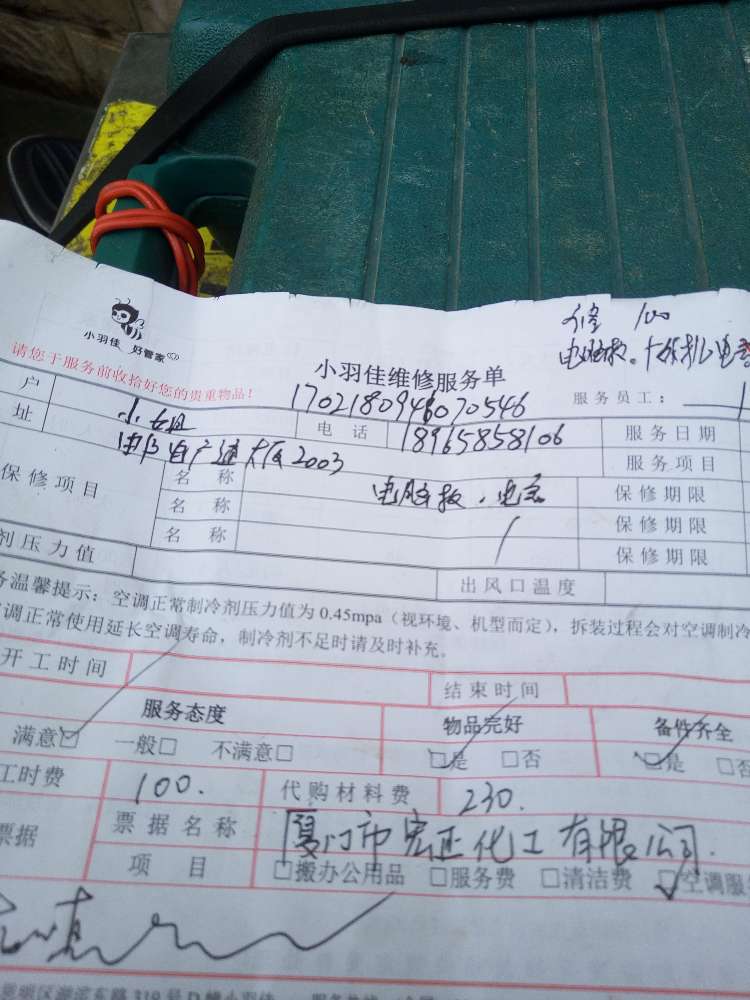 小羽佳 好管家
请您于服务前收拾好您的贵重物品！
小羽佳维修服务单
修 100
电脑板。
服务员工：
1702180946070546
户 小姐 电话 18965858106 服务日期
址 2003 服务项目
保修项目 名称 电脑板、电容 保修期限
名称 保修期限
名称 保修期限
剂压力值 出风口温度
务温馨提示：空调正常制冷剂压力值为0.45mpa（视环境、机型而定），拆装过程会对空调制冷
调正常使用延长空调寿命，制冷剂不足时请及时补充。
开工时间 结束时间
服务态度 物品完好 备件齐全
满意☑ 一般□ 不满意□ ☑是 □否 ☑是 □否
工时费 100. 代购材料费 230.
票据 票据名称 厦门市宏正化工有限公司.
项目 □搬办公用品 □服务费 □清洁费 ☑空调服
思明区湖滨东路319号D幢小羽佳